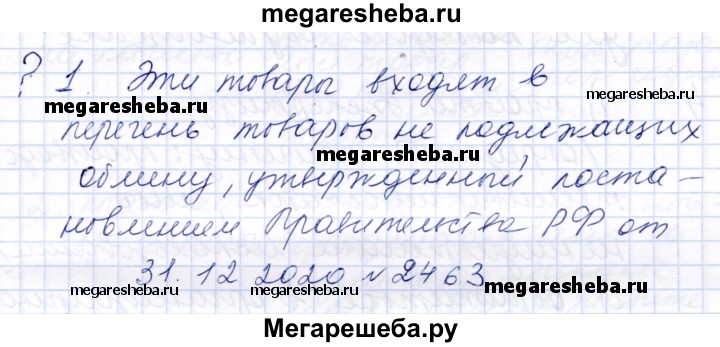 megaresheba.ru
? 1. Эти товары входят в
megaresheba.ru megaresheba.ru
перечень товаров не подлежащих
megaresheba.ru
обмену, утвержденный поста-
новлением Правительства РФ от
31.12.2020 №2463
megaresheba.ru megaresheba.ru megaresheba.ru
Мегарешеба.ру